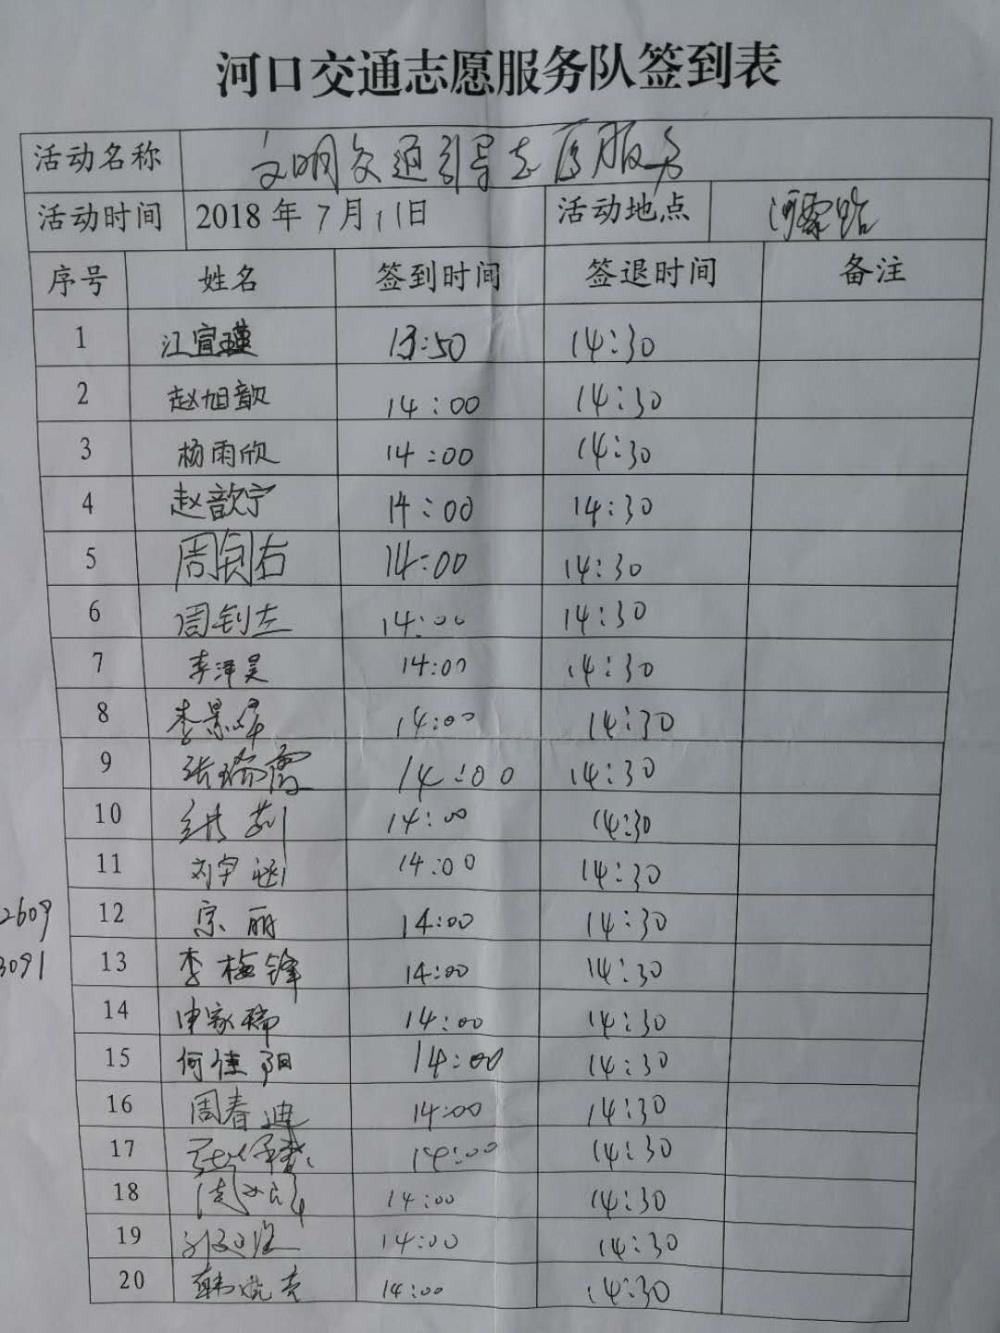 河口交通志愿服务队签到表
活动名称 文明交通引导志愿服务
活动时间 2018年7月11日 活动地点 河霖路
序号 姓名 签到时间 签退时间 备注
1 江宜瑾 13:50 14:30
2 赵旭歆 14:00 14:30
3 杨雨欣 14:00 14:30
4 赵歆宁 14:00 14:30
5 周钊右 14:00 14:30
6 周钊左 14:00 14:30
7 李泽昊 14:00 14:30
8 李景 14:00 14:30
9 张瑜霞 14:00 14:30
10 14:00 14:30
11 刘宇涵 14:00 14:30
2609 12 宗丽 14:00 14:30
3091 13 李梅锋 14:00 14:30
14 申家瑞 14:00 14:30
15 何佳阳 14:00 14:30
16 周春迪 14:00 14:30
17 14:00 14:30
18 14:00 14:30
19 14:00 14:30
20 韩 14:00 14:30